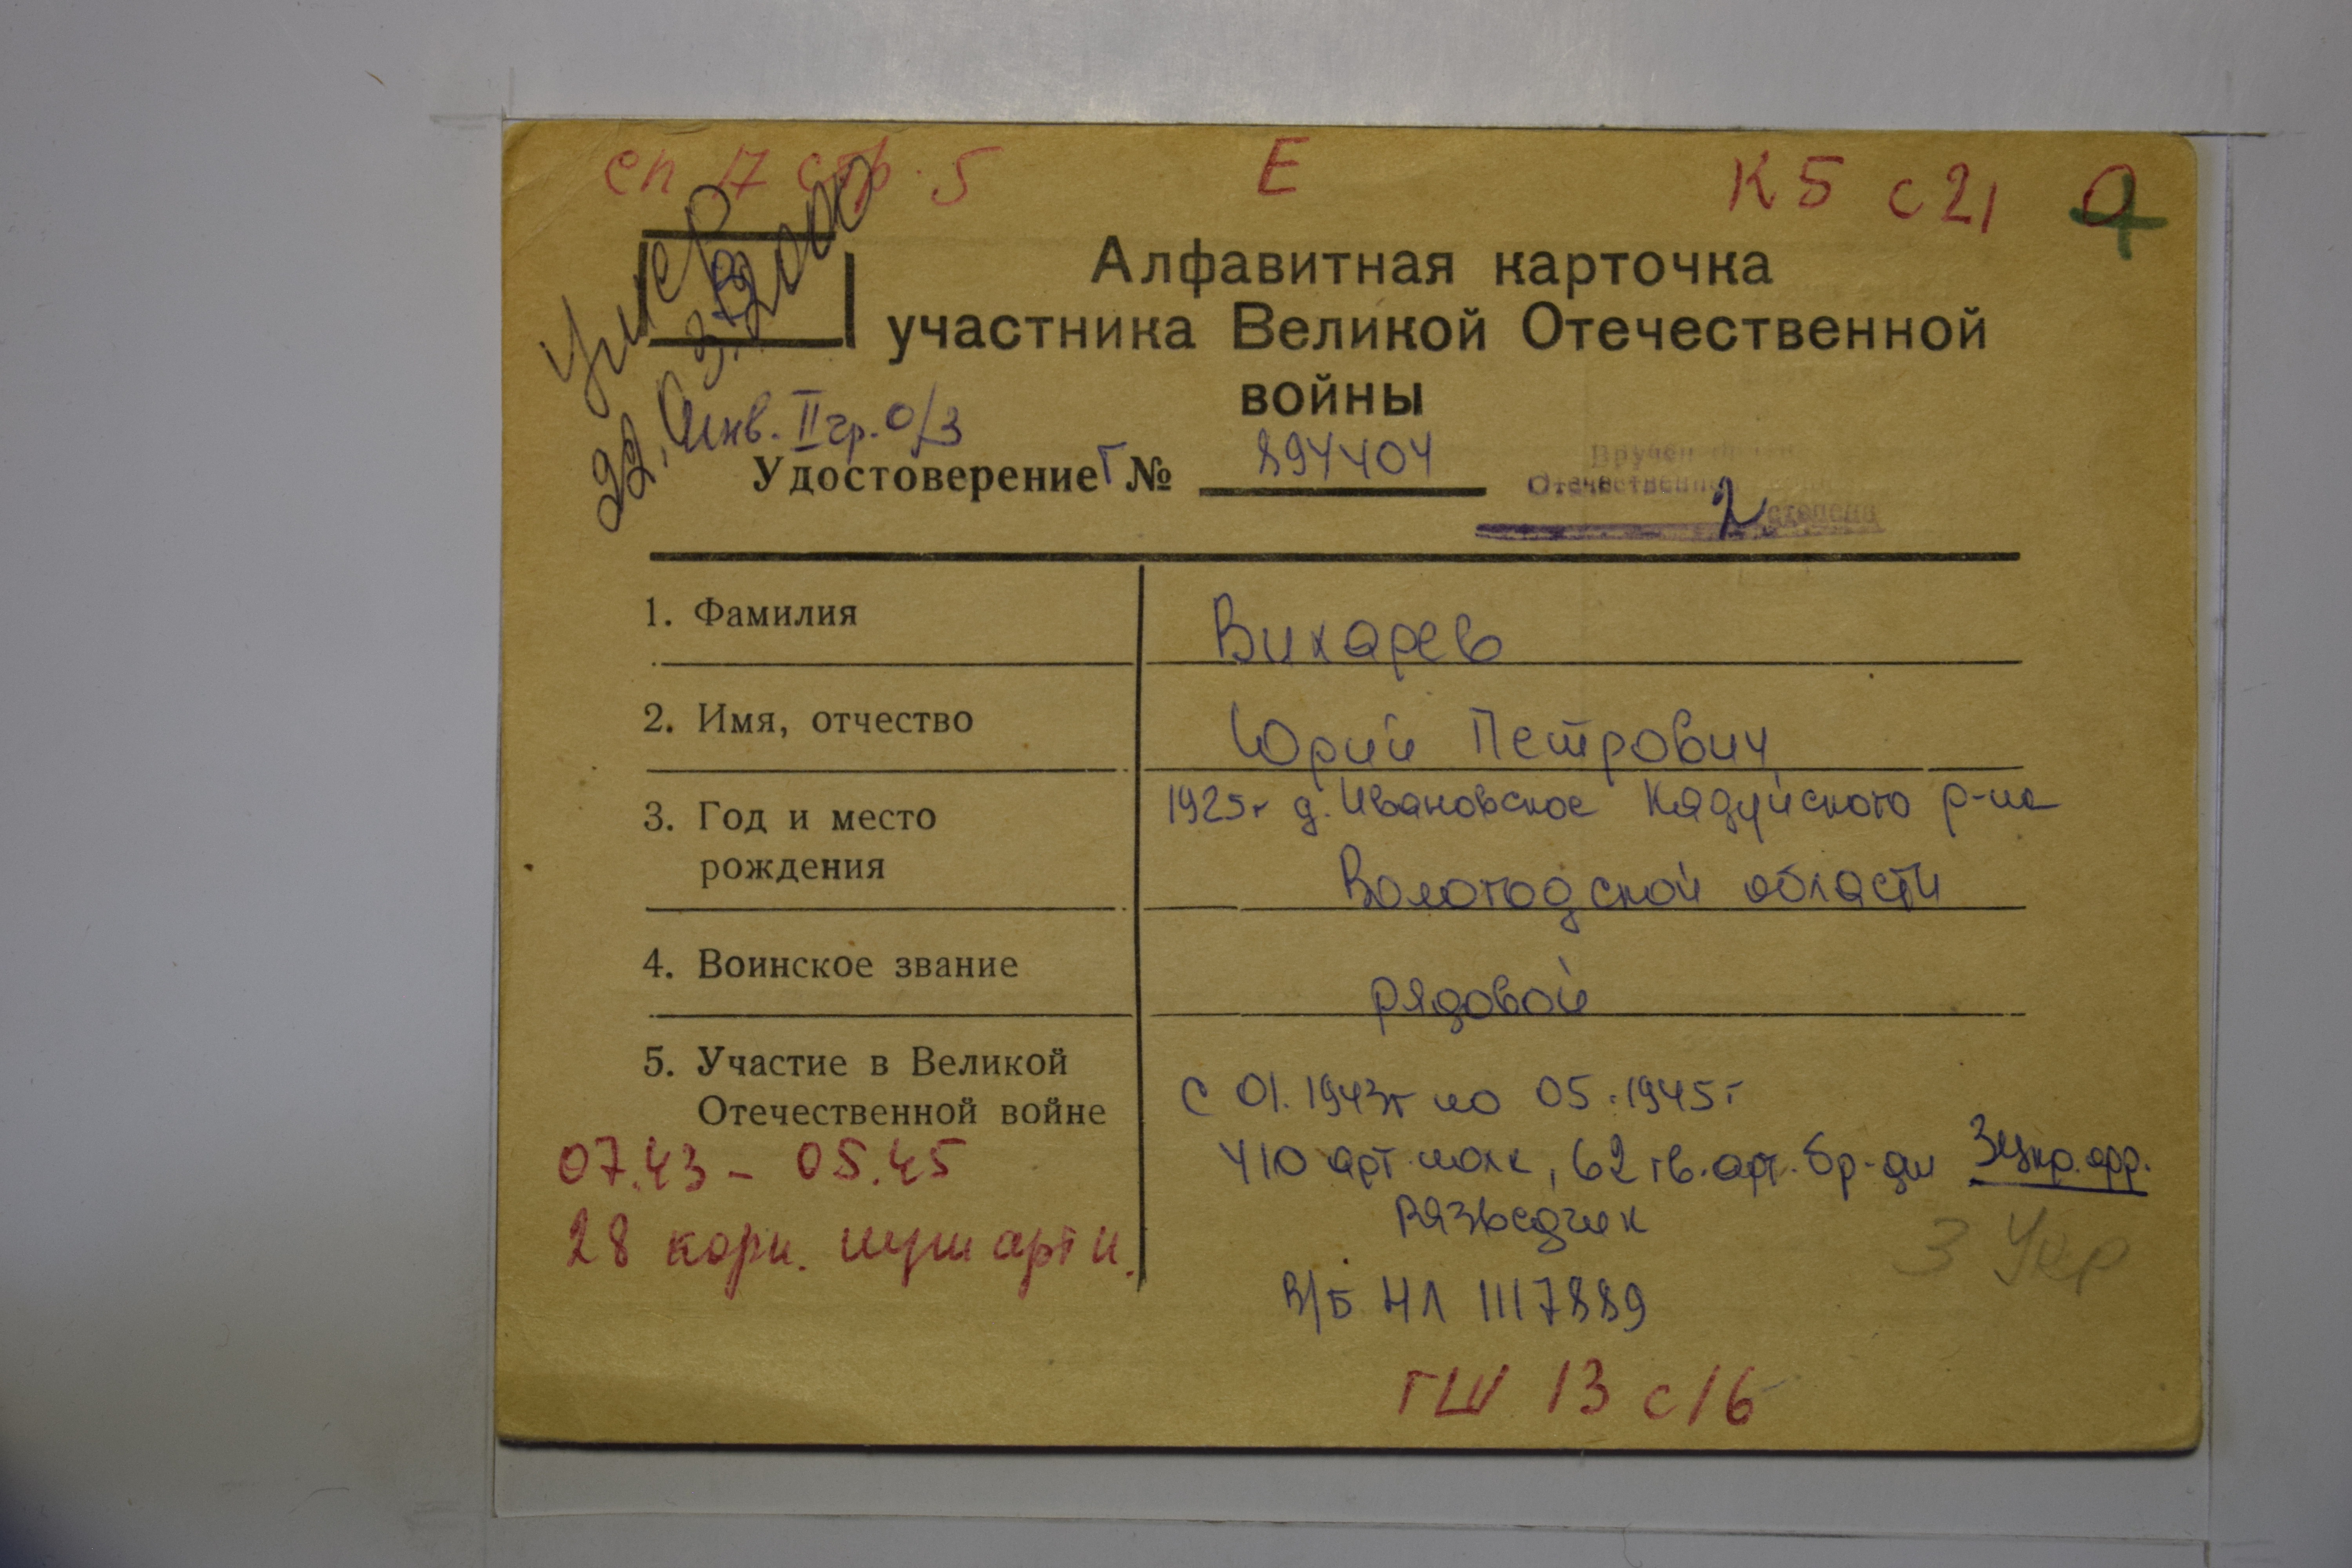 сп 17 стр. 5 Е К5 с 21
Умер
22.03.2000
Алфавитная карточка
участника Великой Отечественной
войны
Инв. II гр. о/з
Удостоверение Г № 894404
Вручен
Отечественной
2 степени
1. Фамилия Вихарев
2. Имя, отчество Юрий Петрович
3. Год и место 1925г д. Ивановское Кадуйского р-на
рождения Вологодской области
4. Воинское звание рядовой
5. Участие в Великой
Отечественной войне с 01.1943г по 05.1945г
07.43 - 05.45 410 арт. полк, 62 гв. арт. бр-ды 3 Укр. фр.
разведчик
28 корп. пуш арт п. 3 Укр
В/б НЛ 1117889
ГШ 13 с 16